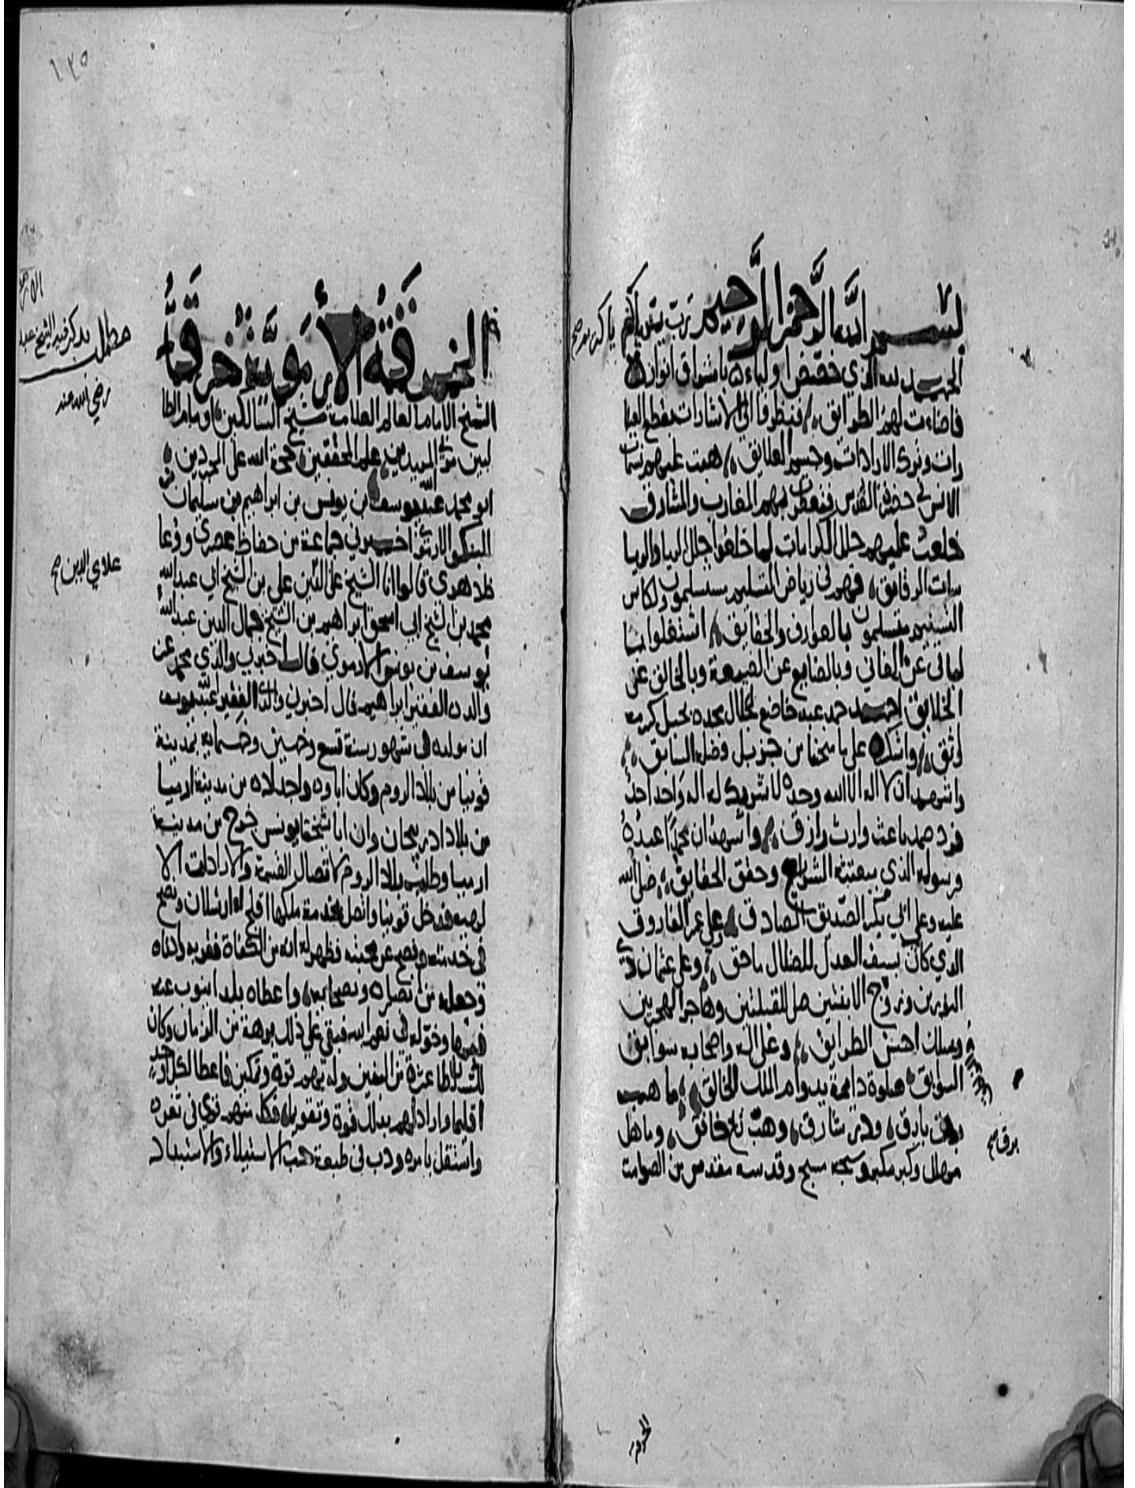 بسم الله الرحمن الرحيم رب يسر يا كريم
الحمد لله الذي خصص اولياءه باشراق انواره
فاضاءت لهم الطوايق فنظروا الى الاشارات
رات ونورى الارادات وحسم العلايق هبت عليهم نسمات
الانس في حضرة القدس فتعطر بهم المغارب والمشارق
خلعت عليهم حلل الكرامات لما خلعوا حلل الريا والريا
سات الرقايق فهم في رياض التسليم سيسلمون ولكاس
التسنيم متسلمون بالعوارف والحقايق اشتغلوا
لباقي عن الفاني وبالصانع عن الصنعة وبالخالق عن
الخلايق احمده حمد عبد خاضع لجلال مجده بحبل كرمه
اوثق واشكره على ما منحنا من جزيل فضله السابق
واشهد ان لا اله الا الله وحده لا شريك له اله واحد احد
فرد صمد باعث وارث رازق واشهد ان محمدا عبده
ورسوله الذي ببعثته الشرايع وحقق الحقايق صلى الله
عليه وعلى ابي بكر الصديق الصادق وعلى عمر الفاروق
الذي كان بسيف العدل للضلال ماحق وعلى عثمان ذي
النورين وزوج الابنتين صلى للقبلتين وهاجر الهجرتين
وسلك احسن الطرايق وعلى اله واصحابه سوابق
السوابق صلوة دايمة بدوام الملك الخالق ما هب
برق بارق وذر شارق وهب ريح خافق وما هل
مهلل وكبر مكبر وسبحه مسبح وقدسه مقدس من الصوامت
برق صح
الخرقة
١٢٥
الخرقة الأرموية خرقة
الشيخ الامام العالم العلامة شيخ السالكين اوسام الطا
لبين مربي المريدين علم المحققين حجة الله على الموحدين
ابو محمد عبد الله يوسف بن يونس بن ابراهيم بن سلمان
الارموي اخبرني جماعة من حفاظ عصري ووعا
ظ دهري قالوا انا الشيخ علي الدين علي بن الشيخ ابي عبد الله
محمد بن الشيخ ابي اسحق ابراهيم بن الشيخ جمال الدين عبد الله
يوسف بن يونس الارموي قال اخبرني والدي محمد عن
والده الفقير ابراهيم قال اخبرني والدي الفقير عبد الله يوسف
ان مولده في شهور سنة تسع وخمسين وخمسمايه بمدينة
قونيا من بلاد الروم وكان اباوه واجداده من مدينة ارميا
من بلاد اذربيجان وان ابا شيخنا يونس خرج من مدينة
ارميا وطلب بلاد الروم لاتصال القسمة والارادات الا
لهية فدخل قونيا واتصل بخدمة ملكها اقليج ارسلان ونصح
في خدمته وافصح عن محبته فظهر له انه من الكفاة فقربه وادناه
وجعله من نصاره ونصحايه واعطاه بلدا ينوب عنه
فيها وخوله في نعم الله فبقي على ذلك برهة من الزمان وكان
للسلطان عشرة من البنين وله بهم قوة وتمكين فاعطا لكل واحد
اقليما واراد لهم بذلك قوة وتقويما فكل منهم قوي في ثغره
واستقل بامره ودب في طبعه حب الاستيلاء والاستبداد
مطلب يذكر فيه الشيخ عبد
رضي الله عنه
علاي الدين صح